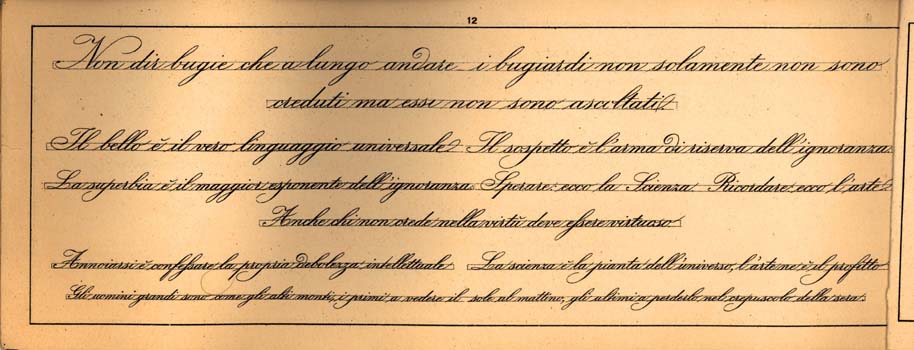 12
Non dir bugie che a lungo andare i bugiardi non solamente non sono
creduti ma essi non sono ascoltati.
Il bello è il vero linguaggio universale. Il sospetto è l'arma di riserva dell'ignoranza.
La superbia è il maggior esponente dell'ignoranza. Sperare: ecco la Scienza. Ricordare: ecco l'arte.
Anche chi non crede nella virtù deve essere virtuoso.
Annoiarsi è confessare la propria debolezza intellettuale. La scienza è la pianta dell'universo, l'arte ne è il profitto
Gli uomini grandi sono come gli alti monti, i primi a vedere il sole al mattino, gli ultimi a perderlo nel crepuscolo della sera.